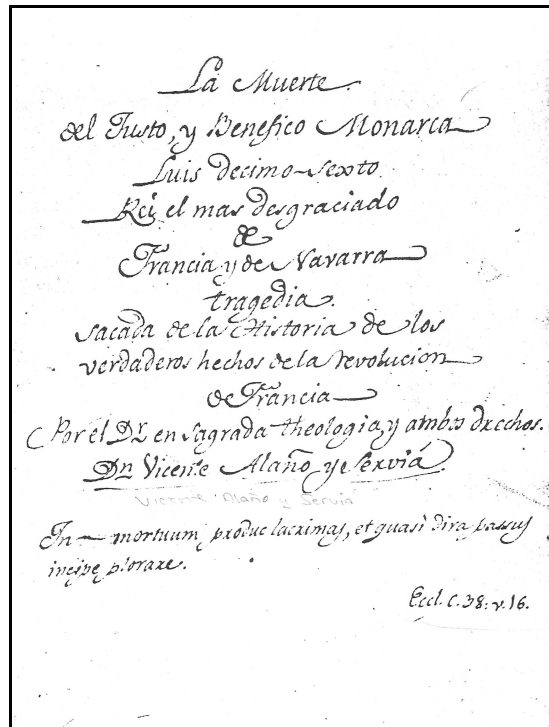 La Muerte
del Justo, y Benefico Monarca
Luis decimo-sexto
Rei el mas desgraciado
de
Francia y de Navarra
tragedia.
sacada de la Historia de los
verdaderos hechos de la revolucion
de Francia
Por el Dr. en sagrada theologia, y ambos drechos.
Dn Vicente Alaño y Serviá.
Vicente Alaño y Serviá
In mortuum produc lacrimas, et quasi dira passus
incipe plorare.
Eccl. C. 38. v. 16.